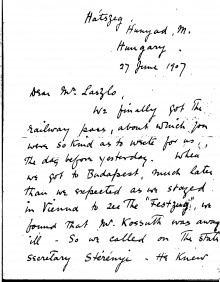 Hátszeg
Hunyad, M.
Hungary.
27 June 1907
Dear Mr. Laszlo,
We finally got the
railway pass, about which you
were so kind as to write for us,
the day before yesterday. When
we got to Budapest, much later
than we expected as we stayed
in Vienna to see the "Festzug", we
found that Mr. Kossuth was away
ill - So we called on the State
secretary Stérényi - He knew